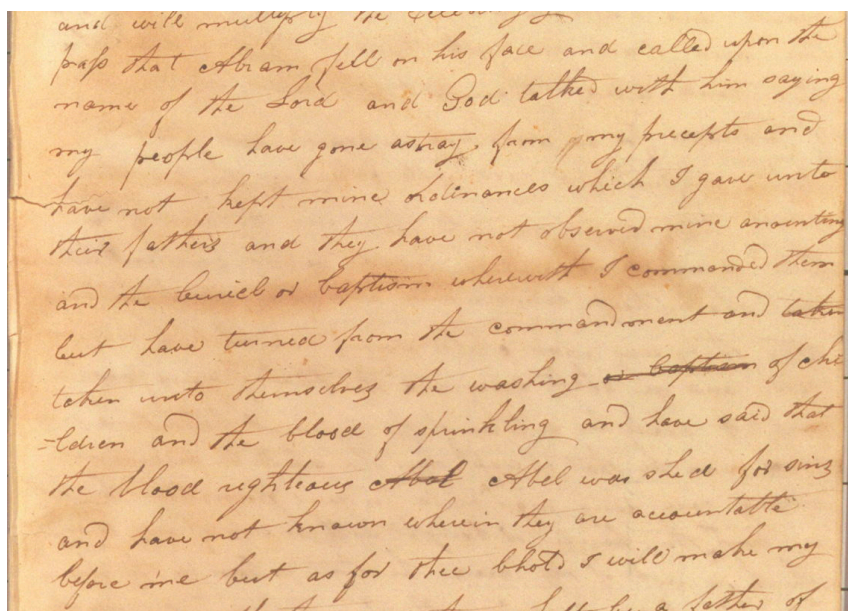 and will multiply the
pass that Abram fell on his face and called upon the
name of the Lord and God talked with him saying
my people have gone astray from my precepts and
have not kept mine ordinances which I gave unto
their fathers and they have not observed mine anointing
and the buriel or baptism wherewith I commanded them
but have turned from the commandment and taken
taken unto themselves the washing or baptism of chi
-ldren and the blood of sprinkling and have said that
the blood righteous Abel Abel was shed for sins
and have not known wherein they are accountable
before me but as for thee bhold I will make my
a father of